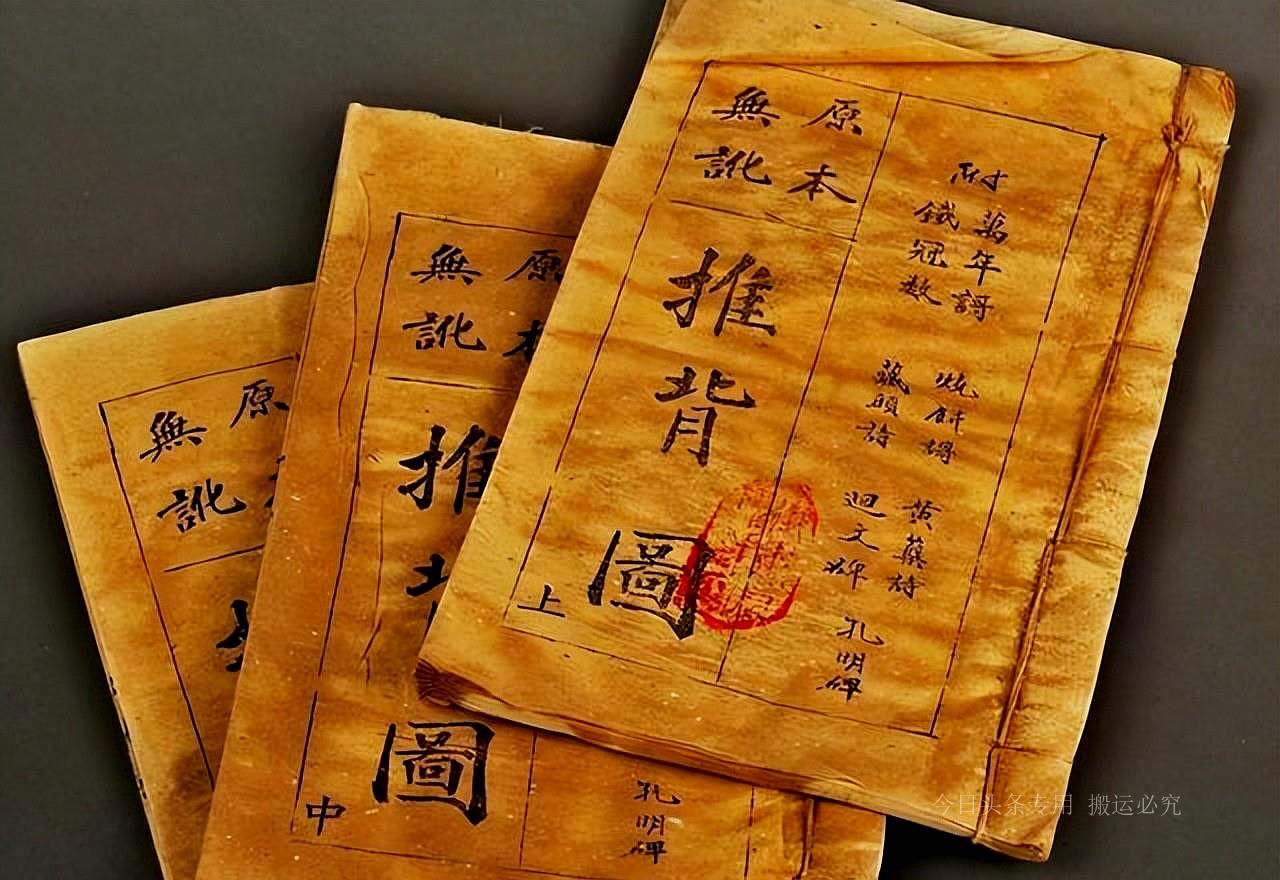 附
萬年謌
鐵冠數
燒餅謌
藏頭詩
黃蘗詩
迴文碑
孔明碑
原本
無訛
推背圖
上
原本
無訛
推背
圖
中
孔明碑
原
無訛
今日头条专用 搬运必究